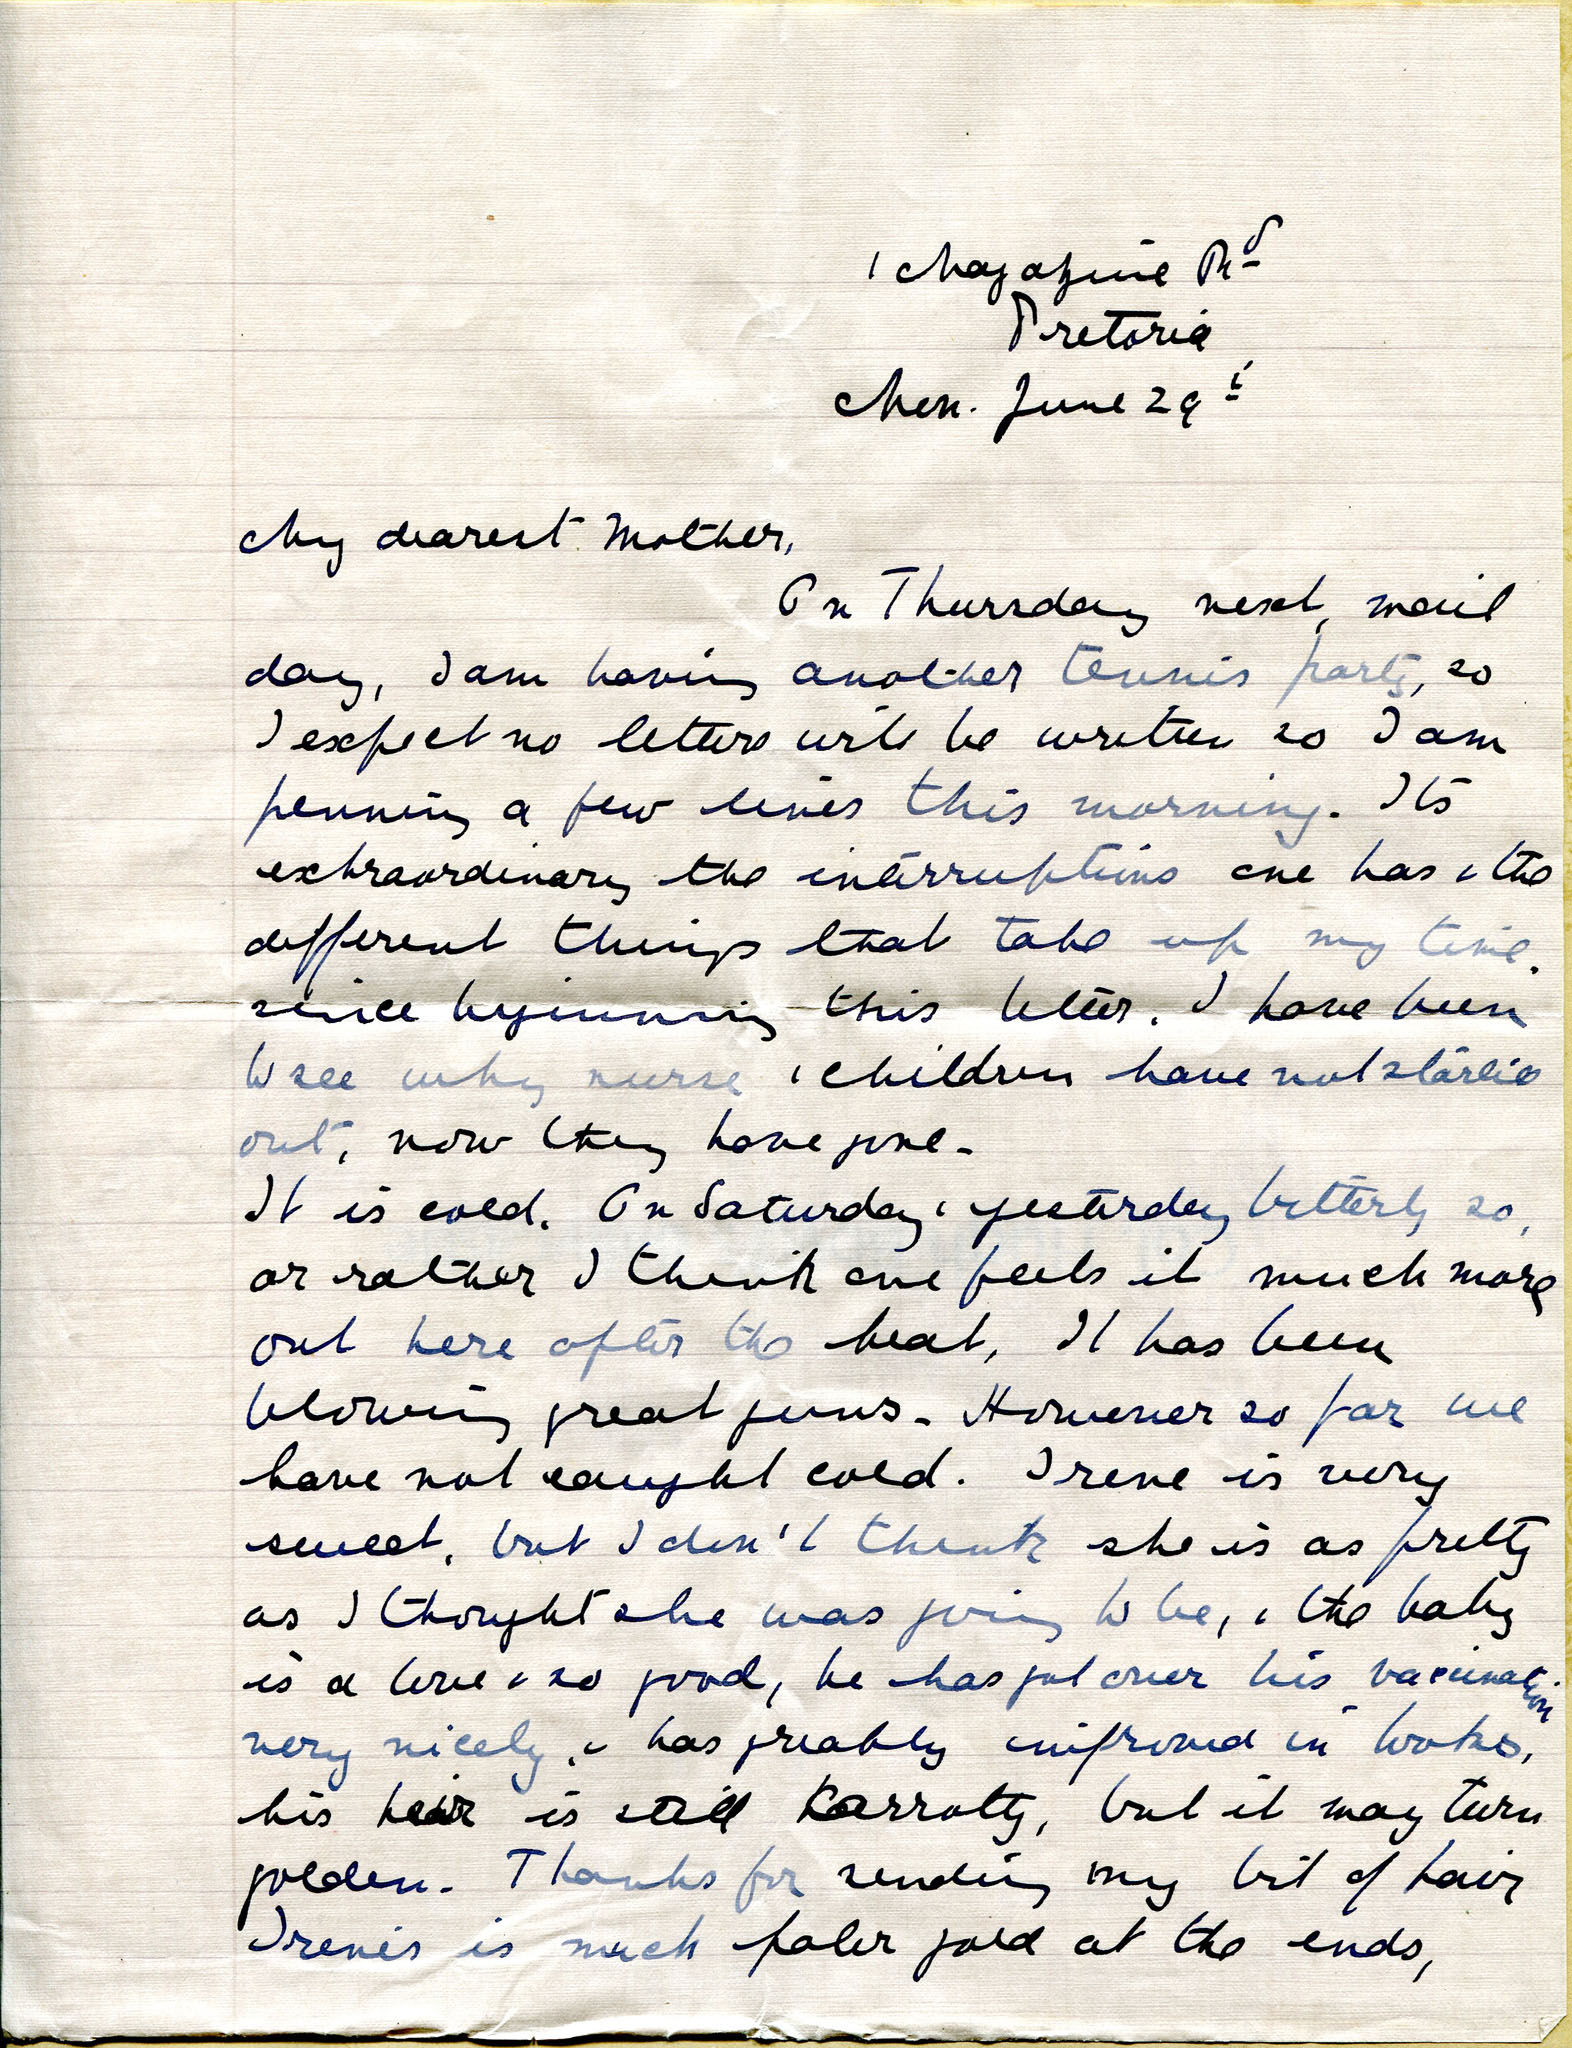 1 Magazine Rd
Pretoria
Mon. June 29t
My dearest Mother,
On Thursday next, mail
day, I am having another tennis party, so
I expect no letters will be written so I am
penning a few lines this morning. Its
extraordinary the interruptions one has & the
different things that take up my time.
since beginning this letter. I have been
to see why nurse & children have not started
out, now they have gone -
It is cold. On Saturday & yesterday bitterly so,
or rather I think one feels it much more
out here after the heat, It has been
blowing great guns - However so far we
have not caught cold. Irene is very
sweet, but I don't think she is as pretty
as I thought she was going to be, & the baby
is a love & so good, he has got over his vaccination
very nicely, & has greatly improved in looks,
his hair is still Karrotty, but it may turn
golden - Thanks for sending my bit of hair
Irenes is much paler gold at the ends,